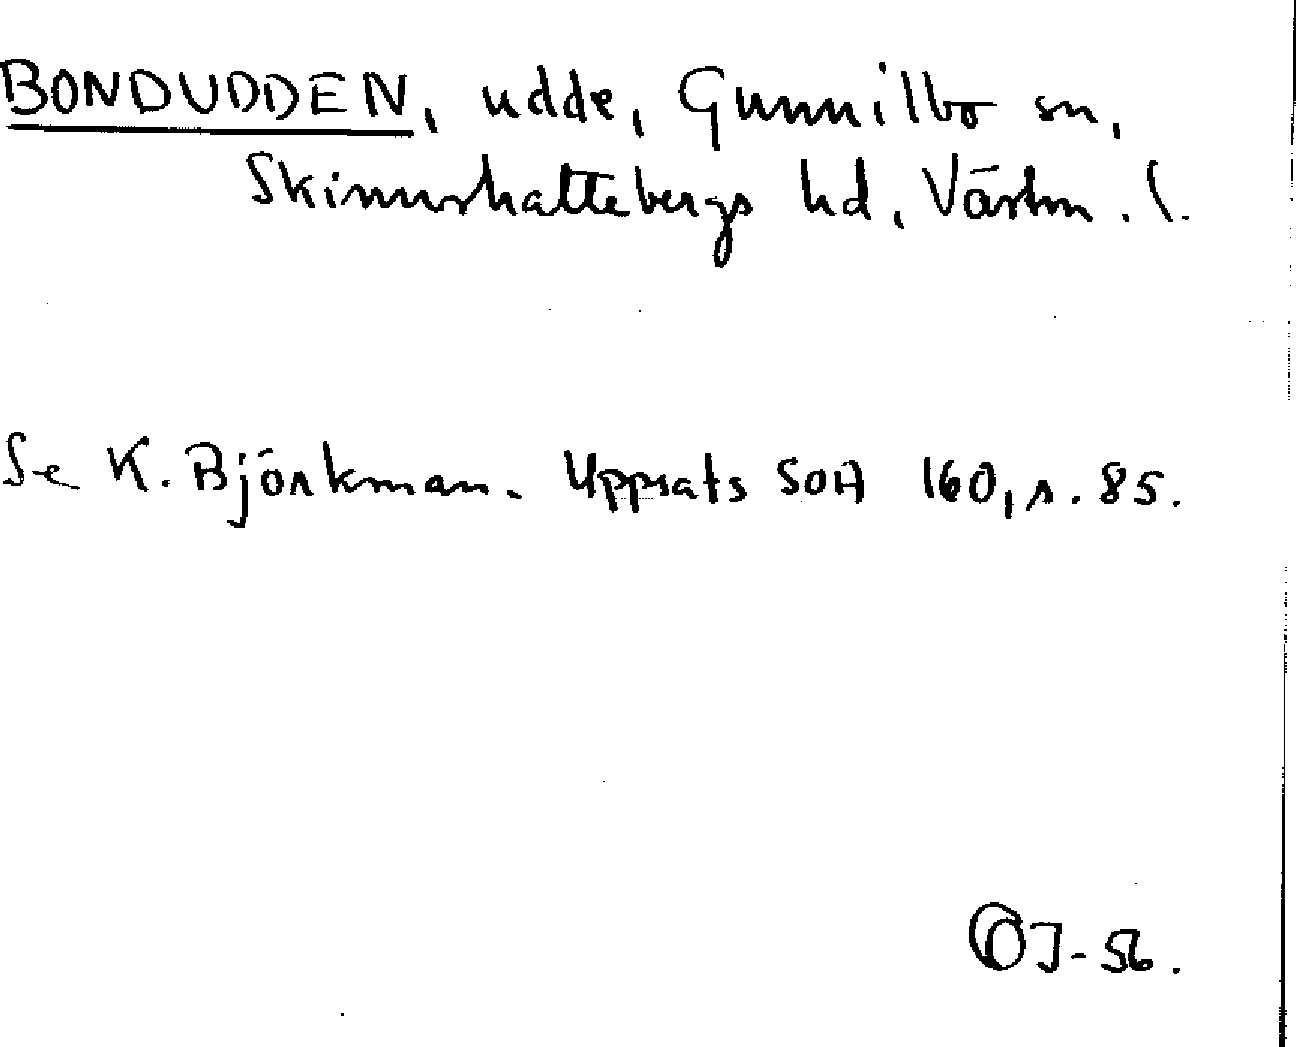 BONDUDDEN, udde, Gunnilbo sn,
Skinnskattebergs hd, Västm. l.
Se K. Björkman. Uppsats SOA 160, s. 85.
OJ-56.